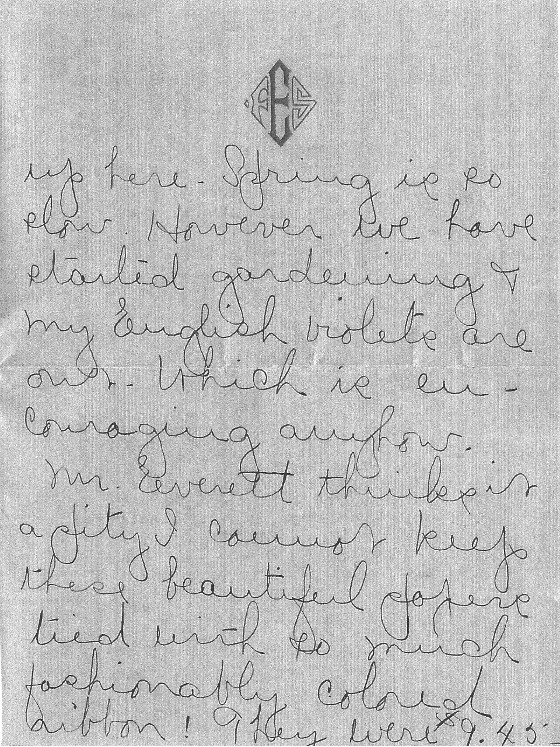 FES
up here - Spring is so
slow. However we have
started gardening &
my English violets are
out - Which is en -
couraging anyhow.
Mr. Everett thinks it
a pity I cannot keep
these beautiful papers
tied with so much
fashionably colored
ribbon! They were $9.45